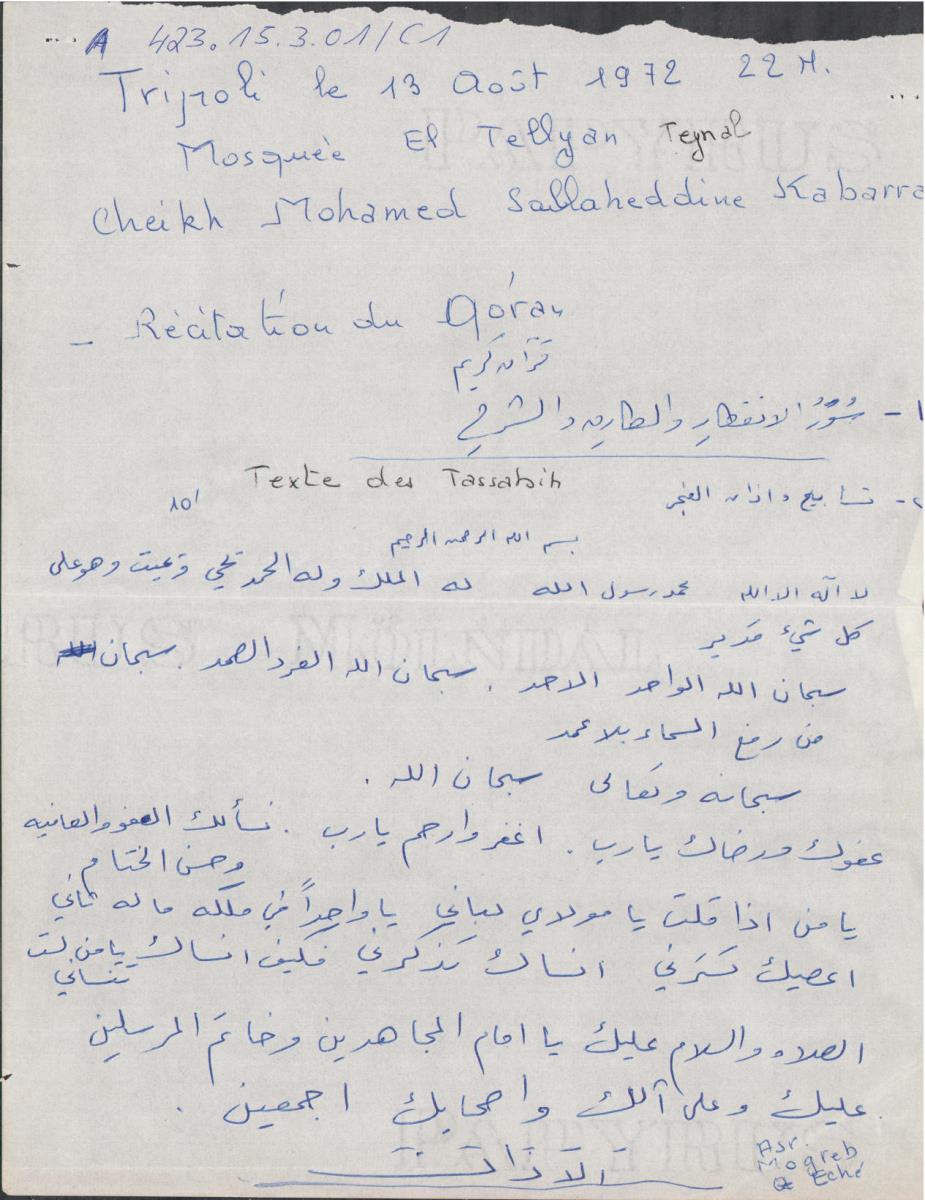 A 423.15.3.01/C1
Tripoli le 13 Août 1972 22 H.
Mosquée El Tellyan Teynal
Cheikh Mohamed Sallaheddine Kabarra
- Récitation du Qóran
قرآن كريم
١ - سُوَرُ الانفطار والطارق والشرح
Texte des Tassabih
٢ - تسابيح واذان الفجر
10'
بسم الله الرحمن الرحيم
لا اله الا الله محمد رسول الله له الملك وله الحمد يحي ويميت وهو على
كل شيء قدير
سبحان الله الواحد الاحد . سبحان الله الفرد الصمد . سبحان
من رفع السماء بلا عمد
سبحانه وتعالى سبحان الله .
عفوك ورضاك يا رب . اغفر وارحم يا رب . نسألك العفو والعافيه
وحسن الختام
يا من اذا قلت يا مولاي لباني يا واحداً في ملكه ما له ثاني
اعصيك تسترني انساك تذكرني فكيف انساك يا من لست
تنساني
الصلاه والسلام عليك يا امام المجاهدين وخاتم المرسلين
عليك وعلى آلك واصحابك اجمعين .
الاذان
Asr.
Mogreb
Eché